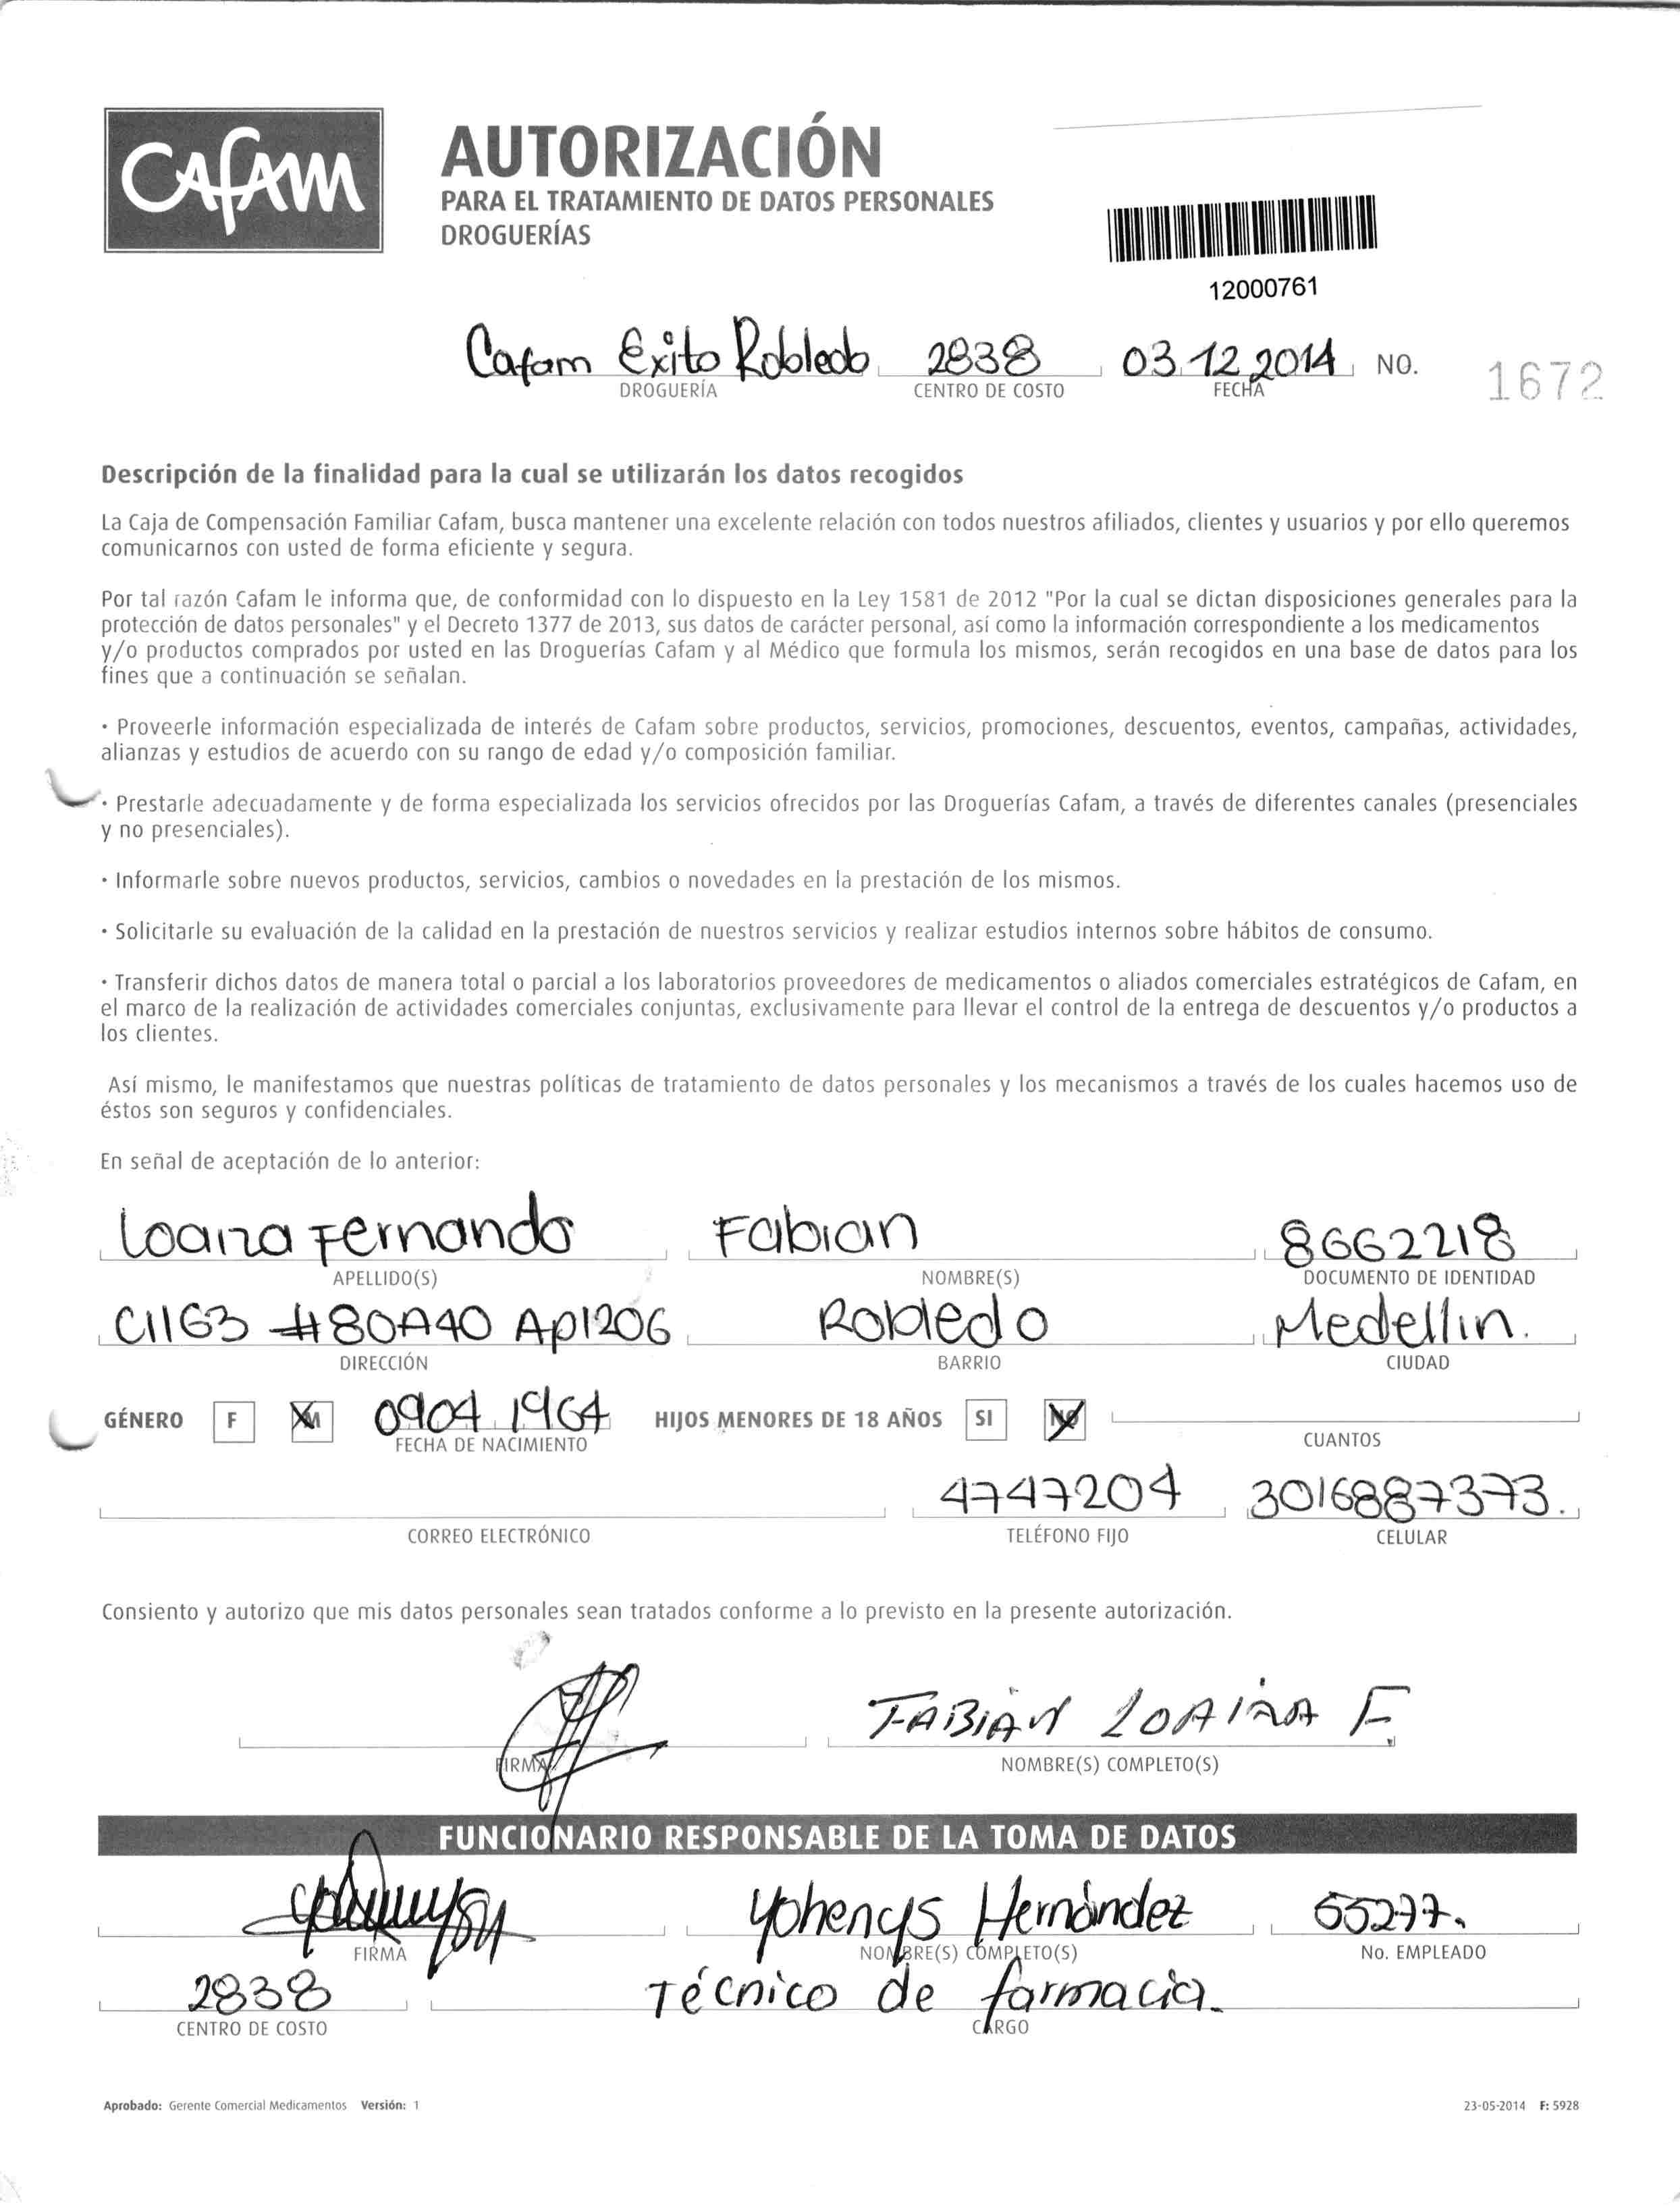 CAFAM
AUTORIZACIÓN
PARA EL TRATAMIENTO DE DATOS PERSONALES
DROGUERÍAS
12000761
Cafam Exito Robledo 2838 03.12.2014 NO. 1672
DROGUERÍA CENTRO DE COSTO FECHA
Descripción de la finalidad para la cual se utilizarán los datos recogidos
La Caja de Compensación Familiar Cafam, busca mantener una excelente relación con todos nuestros afiliados, clientes y usuarios y por ello queremos
comunicarnos con usted de forma eficiente y segura.
Por tal razón Cafam le informa que, de conformidad con lo dispuesto en la Ley 1581 de 2012 "Por la cual se dictan disposiciones generales para la
protección de datos personales" y el Decreto 1377 de 2013, sus datos de carácter personal, así como la información correspondiente a los medicamentos
y/o productos comprados por usted en las Droguerías Cafam y al Médico que formula los mismos, serán recogidos en una base de datos para los
fines que a continuación se señalan.
· Proveerle información especializada de interés de Cafam sobre productos, servicios, promociones, descuentos, eventos, campañas, actividades,
alianzas y estudios de acuerdo con su rango de edad y/o composición familiar.
· Prestarle adecuadamente y de forma especializada los servicios ofrecidos por las Droguerías Cafam, a través de diferentes canales (presenciales
y no presenciales).
· Informarle sobre nuevos productos, servicios, cambios o novedades en la prestación de los mismos.
· Solicitarle su evaluación de la calidad en la prestación de nuestros servicios y realizar estudios internos sobre hábitos de consumo.
· Transferir dichos datos de manera total o parcial a los laboratorios proveedores de medicamentos o aliados comerciales estratégicos de Cafam, en
el marco de la realización de actividades comerciales conjuntas, exclusivamente para llevar el control de la entrega de descuentos y/o productos a
los clientes.
Así mismo, le manifestamos que nuestras políticas de tratamiento de datos personales y los mecanismos a través de los cuales hacemos uso de
éstos son seguros y confidenciales.
En señal de aceptación de lo anterior:
Loaiza Fernando Fabian 8662218
APELLIDO(S) NOMBRE(S) DOCUMENTO DE IDENTIDAD
Cll63 #80A40 Ap1206 Robledo Medellin.
DIRECCIÓN BARRIO CIUDAD
GÉNERO F M 0904 1964 HIJOS MENORES DE 18 AÑOS SI NO
FECHA DE NACIMIENTO CUANTOS
4747204 3016887373.
CORREO ELECTRÓNICO TELÉFONO FIJO CELULAR
Consiento y autorizo que mis datos personales sean tratados conforme a lo previsto en la presente autorización.
FABIAN LOAIZA F.
FIRMA NOMBRE(S) COMPLETO(S)
FUNCIONARIO RESPONSABLE DE LA TOMA DE DATOS
Yohencys Hernández 55277.
FIRMA NOMBRE(S) COMPLETO(S) No. EMPLEADO
2838 Técnico de farmacia.
CENTRO DE COSTO CARGO
Aprobado: Gerente Comercial Medicamentos Versión: 1 23-05-2014 F: 5928